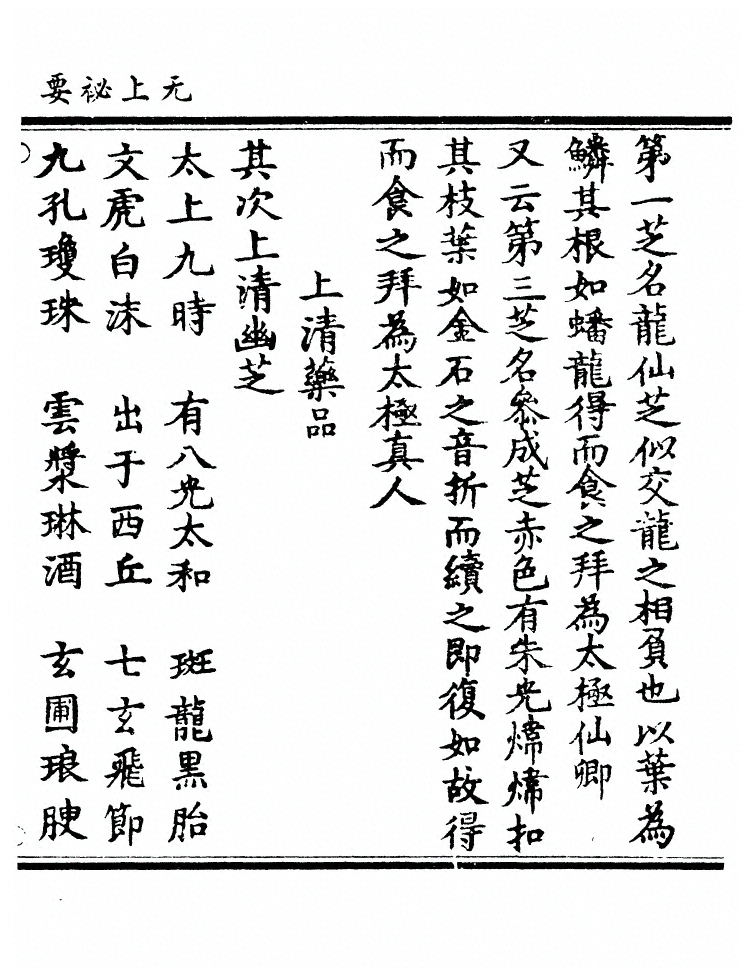 无上祕要
第一芝名龍仙芝似交龍之相負也以葉為
鱗其根如蟠龍得而食之拜為太極仙卿
又云第三芝名叅成芝赤色有朱光煒煒扣
其枝葉如金石之音折而續之即復如故得
而食之拜為太極真人
上清藥品
其次上清幽芝
太上九時 有八光太和 斑龍黑胎
文虎白沫 出于西丘 七玄飛節
九孔瓊珠 雲漿琳酒 玄圃琅腴